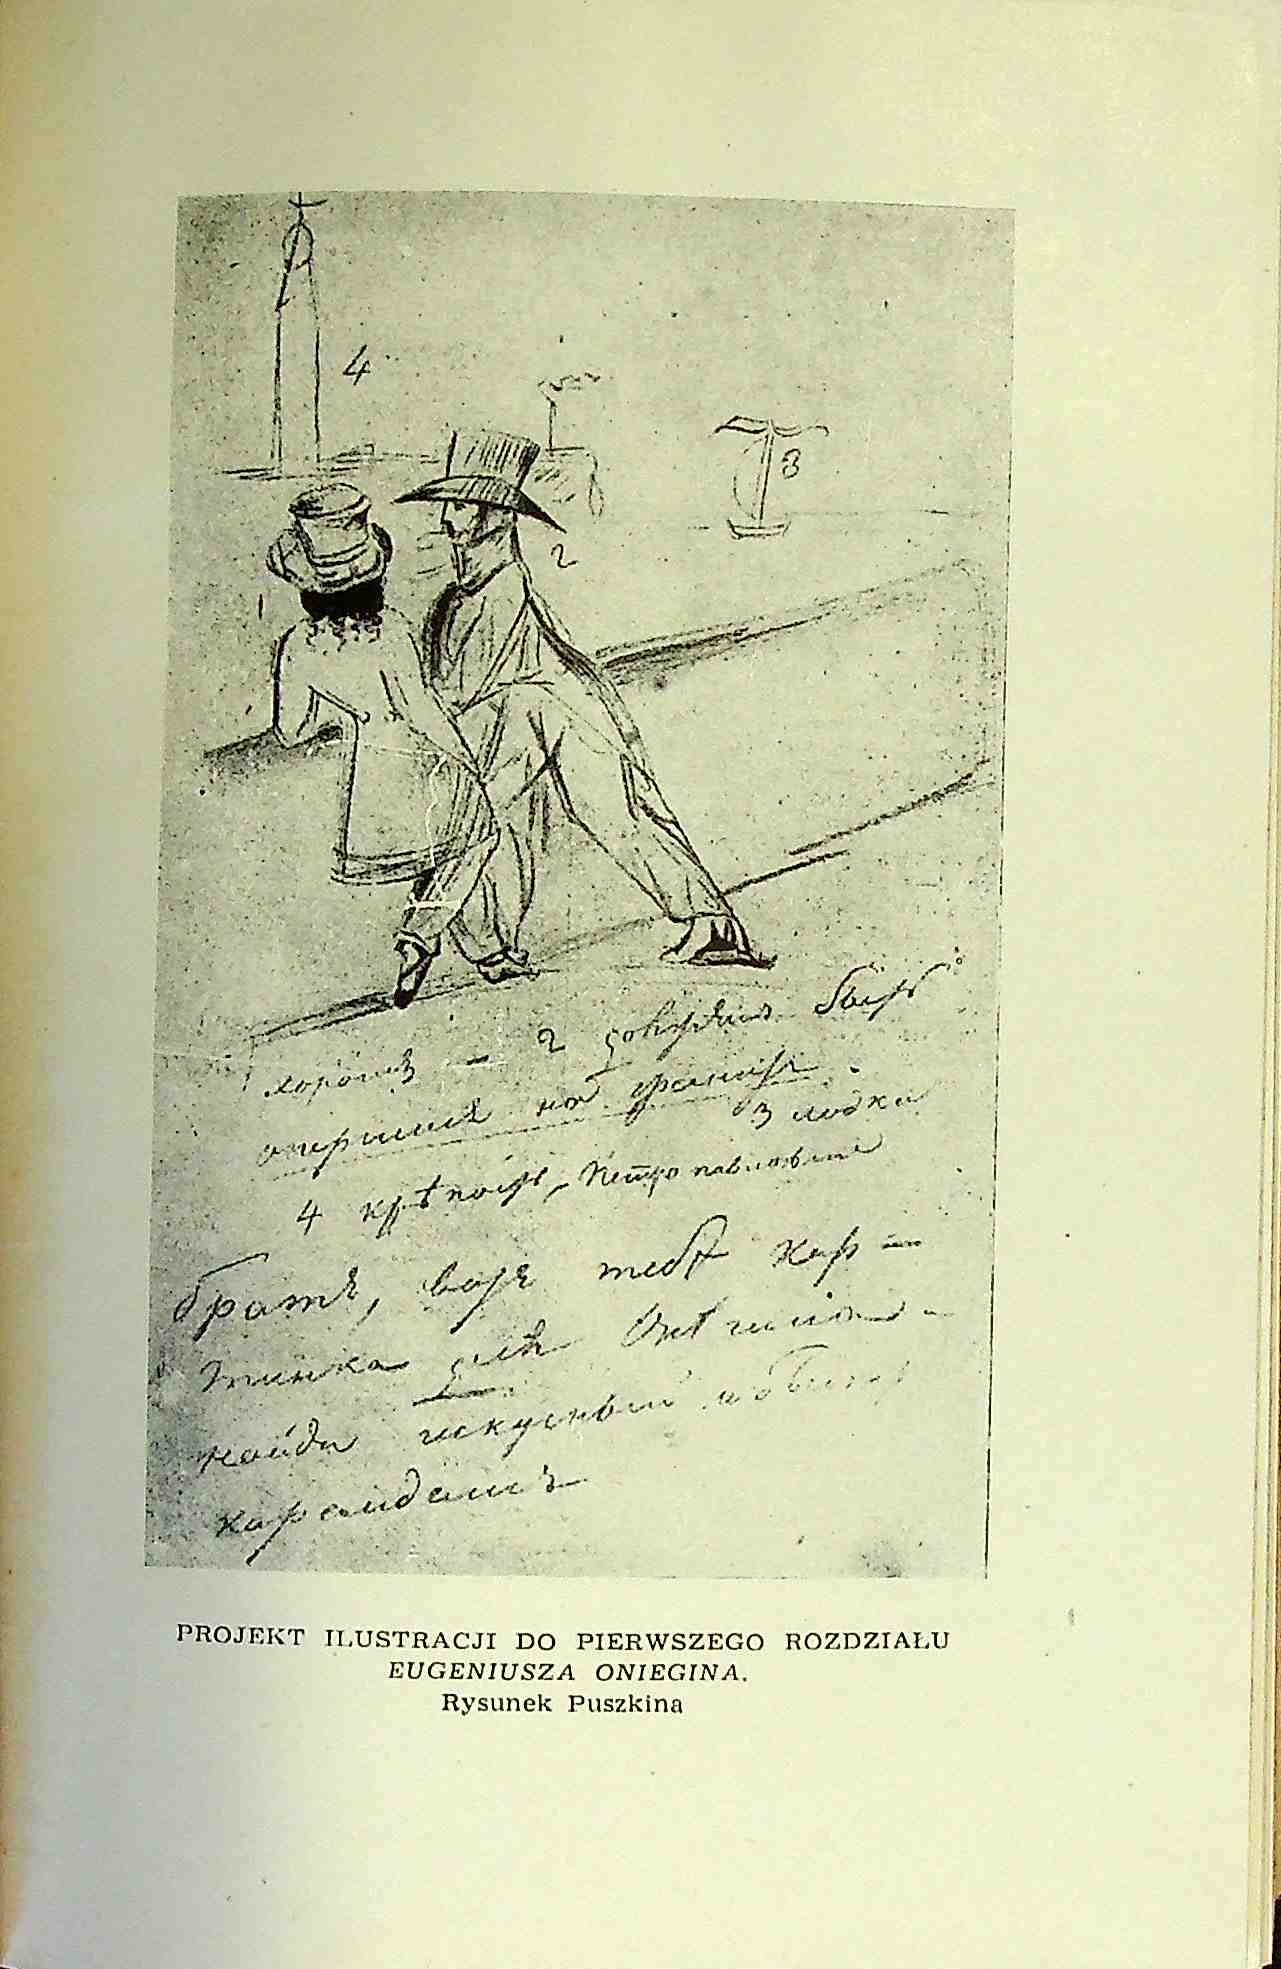 4
3
2
1
1 хорошъ — 2 долженъ быть
опершись на гранитъ.
3 лодка
4 крѣпость, Петропавловская
Братъ, вотъ тебѣ кар—
тинка для Онѣгина -
найди искусный и быстрый
карандашъ
PROJEKT ILUSTRACJI DO PIERWSZEGO ROZDZIAŁU
EUGENIUSZA ONIEGINA.
Rysunek Puszkina